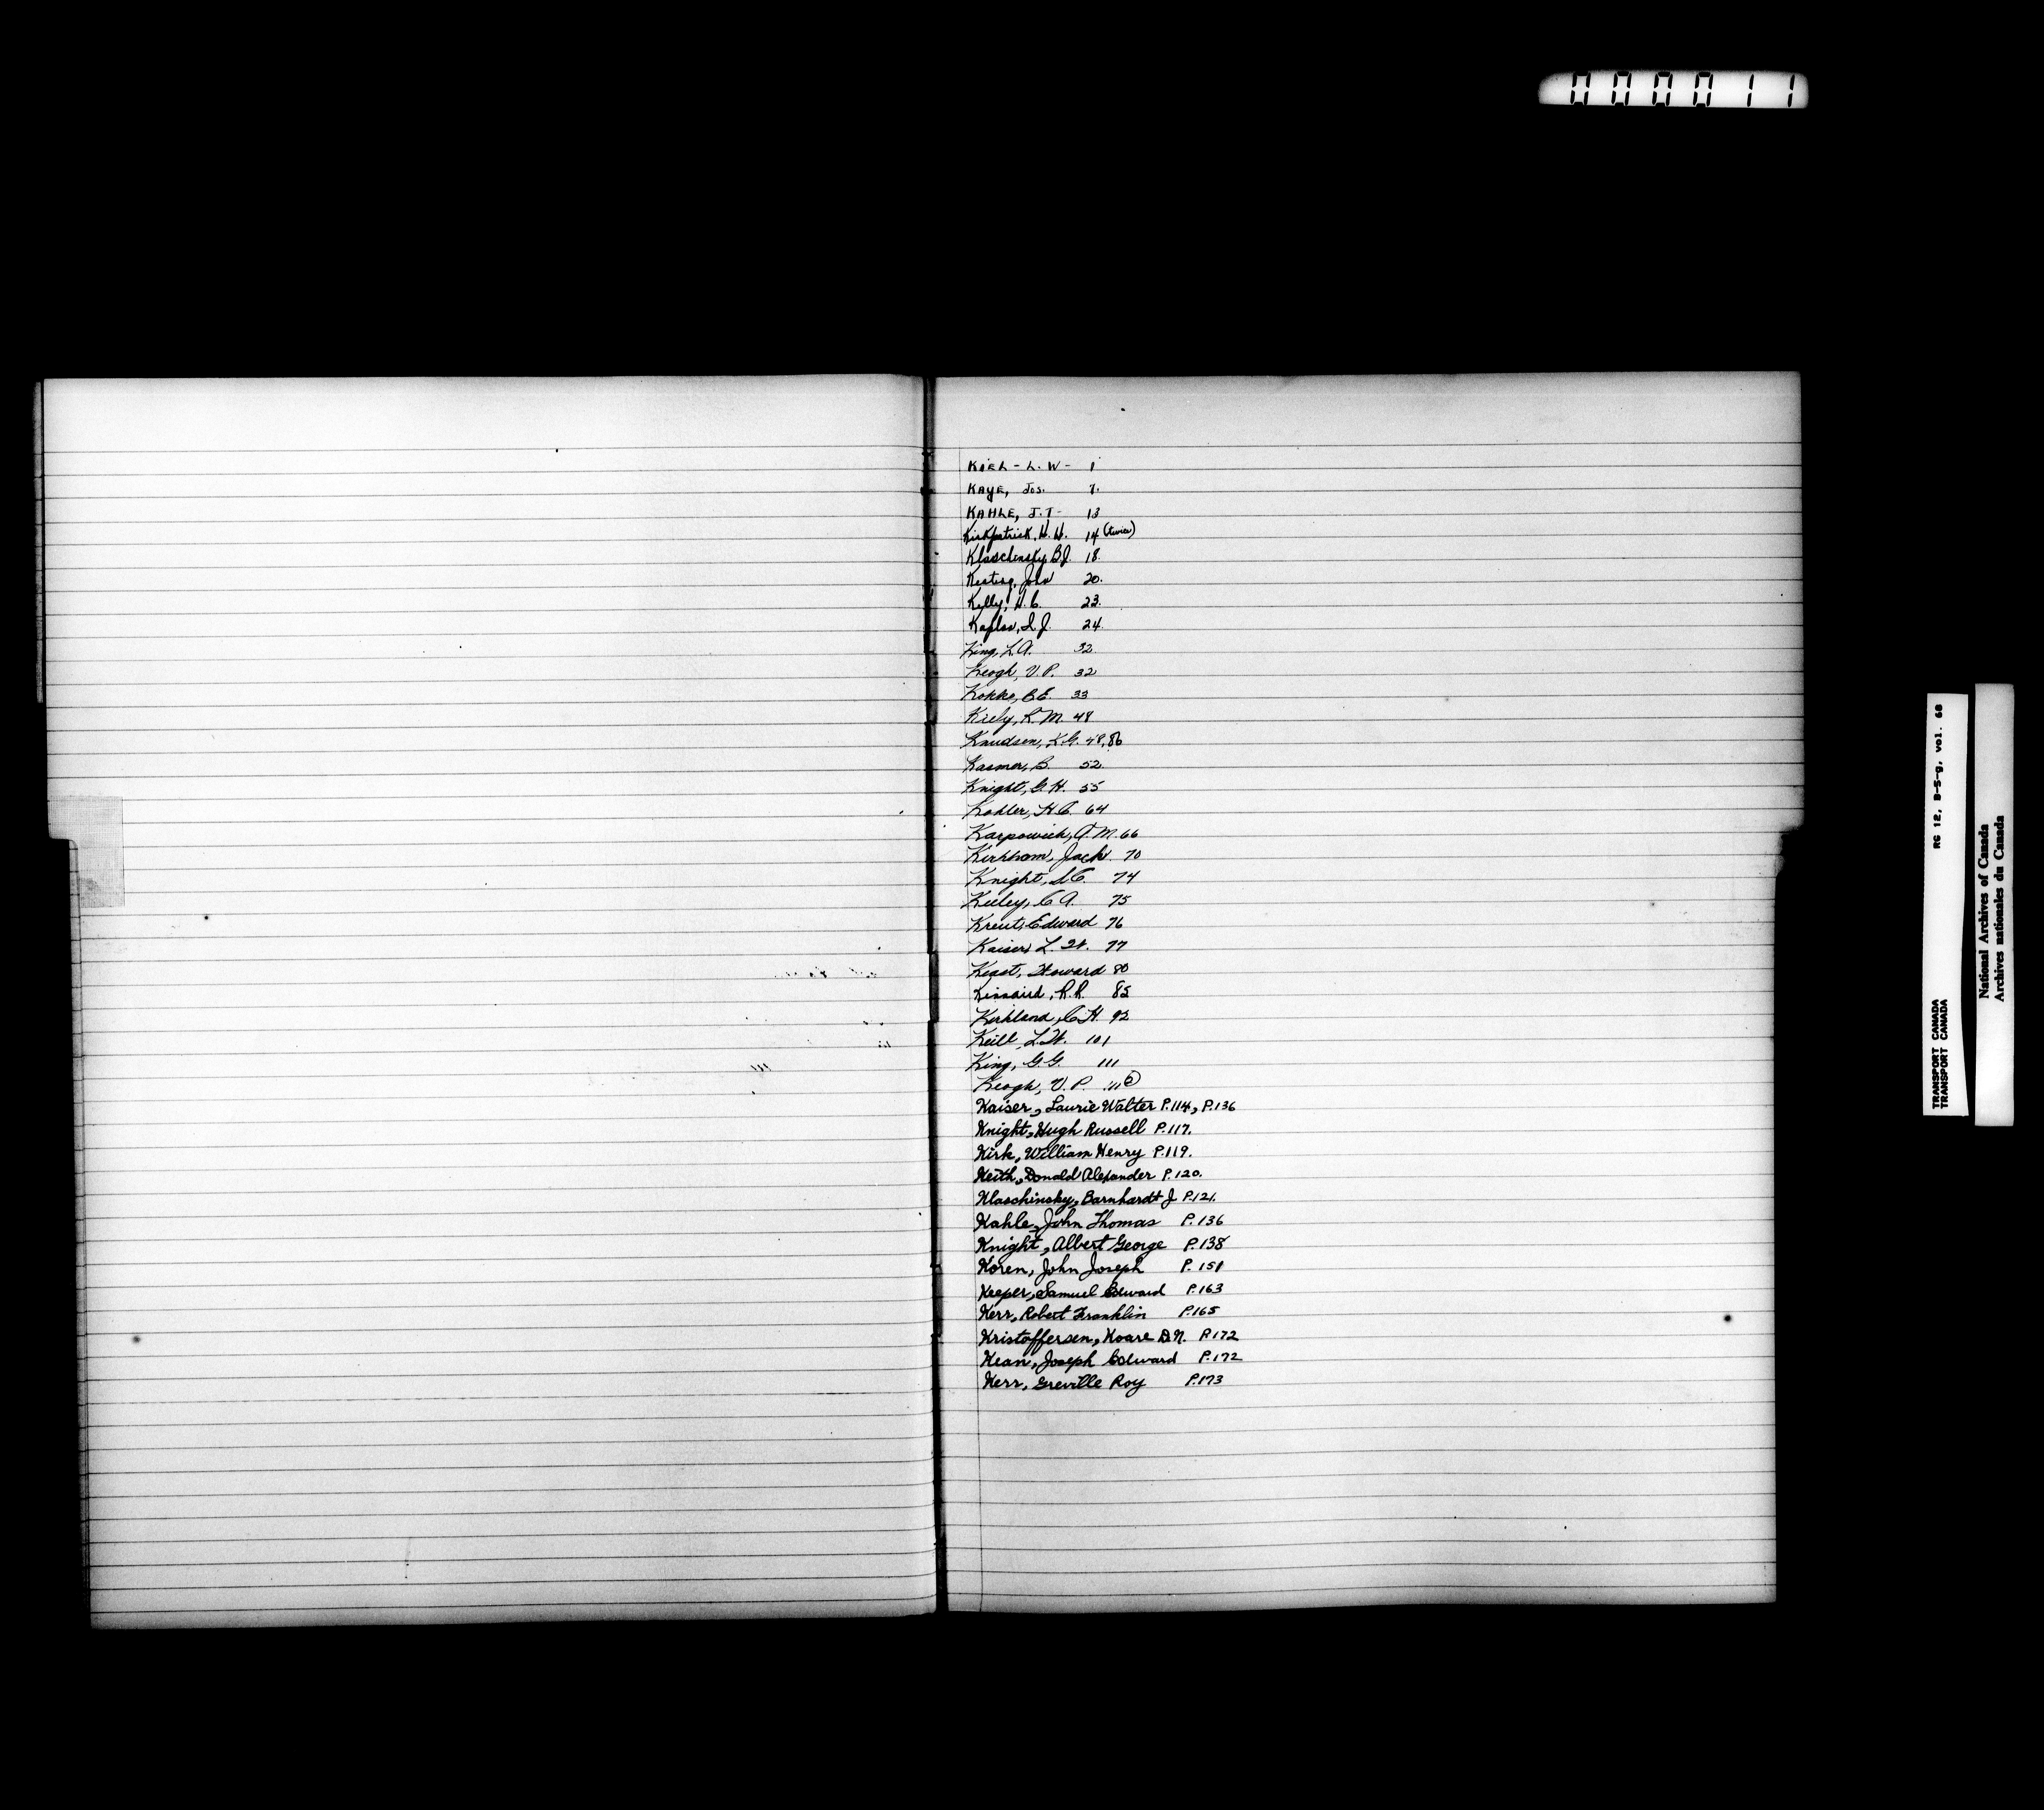 000011
KIEL - L. W - 1
KAYE, Jos. 7.
KAHLE, J. T - 13
Kirkpatrick, H. H. 14 (twice)
Klaschinsky B. J. 18.
Keating, John 20.
Kelly, H. C. 23.
Kaplan, I. J. 24.
King, L. A. 32
Keogh, V. P. 32
Kokko, B. E. 33
Kiely, R. M. 48
Knudsen, K. G. 48, 86
Kasmer, B. 52.
Knight, G. H. 55
Kohler, H. C. 64
Karpowich, A. M. 66
Kirkham, Jack. 70
Knight, S. C. 74
Keeley, C. A. 75
Kreut, Edward 76
Kaiser, L. W. 77
Keast, Howard 80
Kinnaird, R. R. 85
Kirkland, C. H. 92
Keill, L. W. 101
King, G. G. 111
Keogh, V. P. 116
Kaiser, Laurie Walter P. 114, P. 136
Knight, Hugh Russell P. 117.
Kirk, William Henry P. 119.
Keith, Donald Alexander P. 120.
Klaschinsky, Barnhardt J P. 121.
Kahle, John Thomas P. 136
Knight, Albert George P. 138
Koren, John Joseph P. 151
Keeper, Samuel Edward P. 163
Kerr, Robert Franklin P. 165
Kristoffersen, Koare D. N. P. 172
Kean, Joseph Edward P. 172
Kerr, Greville Roy P. 173
TRANSPORT CANADA RG 12, B-5-g, vol. 68
TRANSPORT CANADA
National Archives of Canada
Archives nationales du Canada